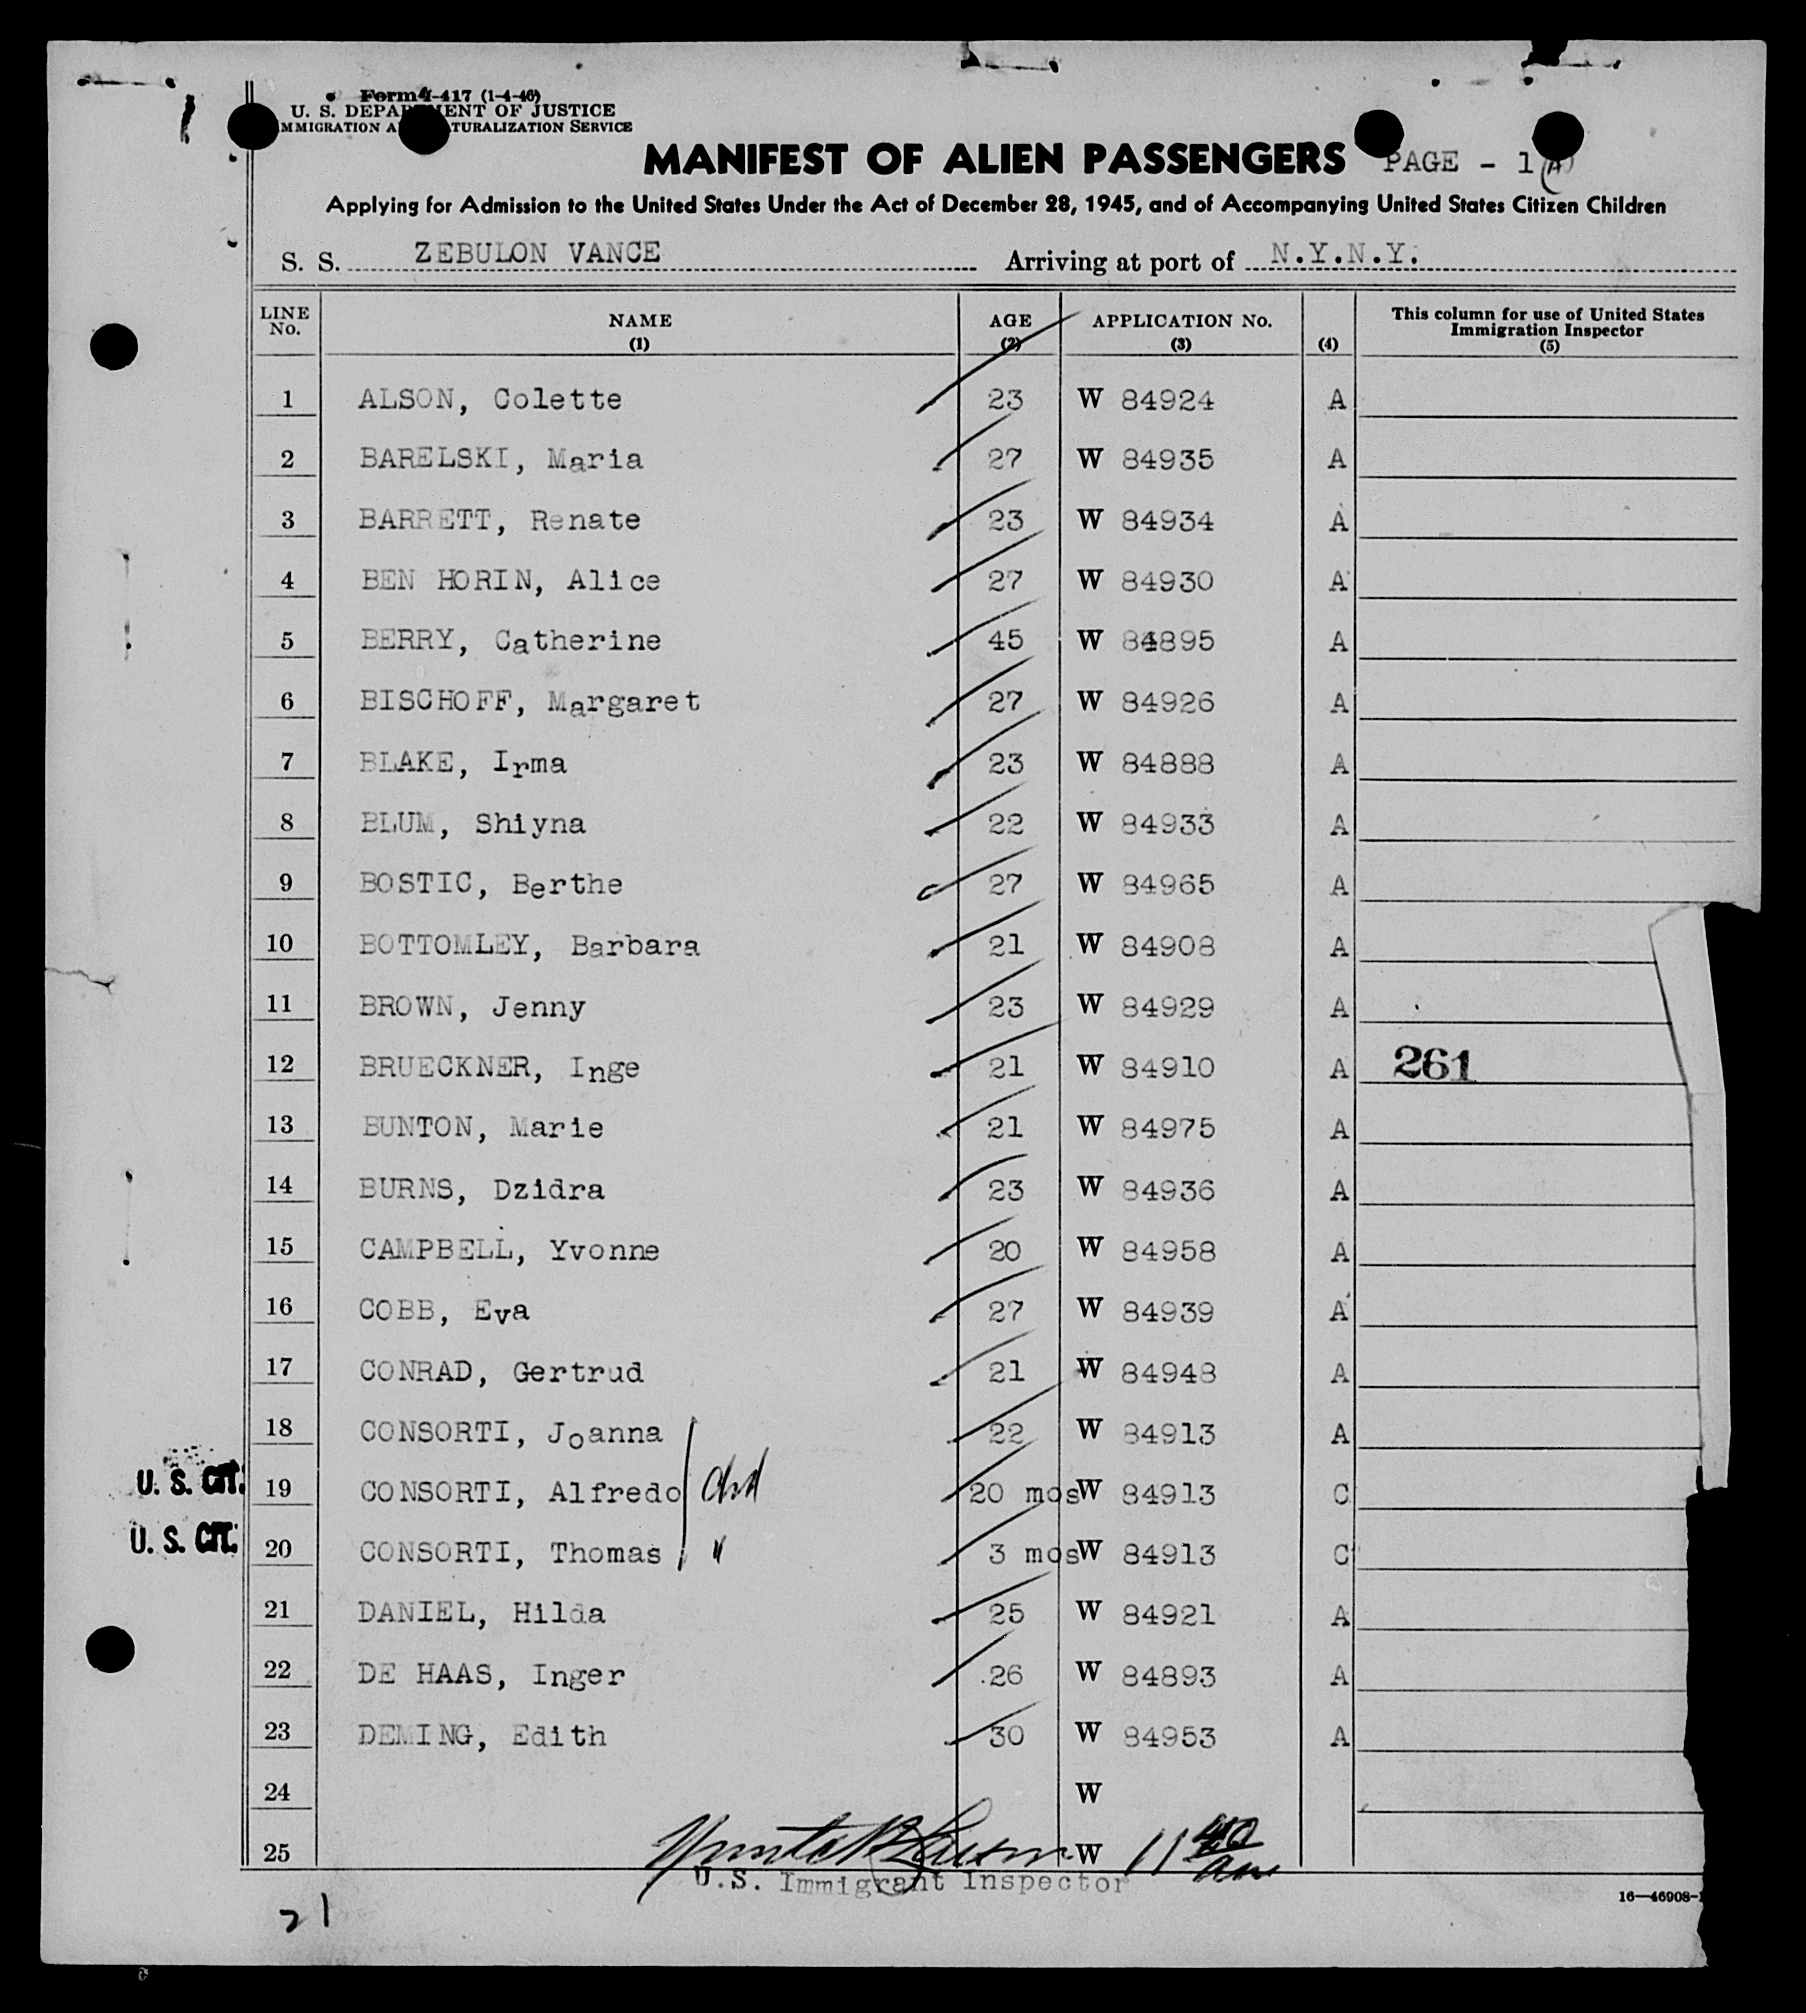 Form I-417 (1-4-46)
U. S. DEPARTMENT OF JUSTICE
IMMIGRATION AND NATURALIZATION SERVICE
MANIFEST OF ALIEN PASSENGERS PAGE - 1 (A)
Applying for Admission to the United States Under the Act of December 28, 1945, and of Accompanying United States Citizen Children
S. S. ZEBULON VANCE Arriving at port of N.Y.N.Y.
LINE No. NAME (1) AGE (2) APPLICATION No. (3) (4) This column for use of United States Immigration Inspector (5)
1 ALSON, Colette 23 W 84924 A
2 BARELSKI, Maria 27 W 84935 A
3 BARRETT, Renate 23 W 84934 A
4 BEN HORIN, Alice 27 W 84930 A
5 BERRY, Catherine 45 W 84895 A
6 BISCHOFF, Margaret 27 W 84926 A
7 BLAKE, Irma 23 W 84888 A
8 BLUM, Shiyna 22 W 84933 A
9 BOSTIC, Berthe 27 W 84965 A
10 BOTTOMLEY, Barbara 21 W 84908 A
11 BROWN, Jenny 23 W 84929 A
12 BRUECKNER, Inge 21 W 84910 A 261
13 BUNTON, Marie 21 W 84975 A
14 BURNS, Dzidra 23 W 84936 A
15 CAMPBELL, Yvonne 20 W 84958 A
16 COBB, Eva 27 W 84939 A
17 CONRAD, Gertrud 21 W 84948 A
18 CONSORTI, Joanna 22 W 84913 A
U. S. CIT. 19 CONSORTI, Alfredo 20 mos W 84913 C
U. S. CIT. 20 CONSORTI, Thomas " 3 mos W 84913 C
21 DANIEL, Hilda 25 W 84921 A
22 DE HAAS, Inger 26 W 84893 A
23 DEMING, Edith 30 W 84953 A
24 W
25 W 11 40 am
U.S. Immigrant Inspector
16—46908-1
21